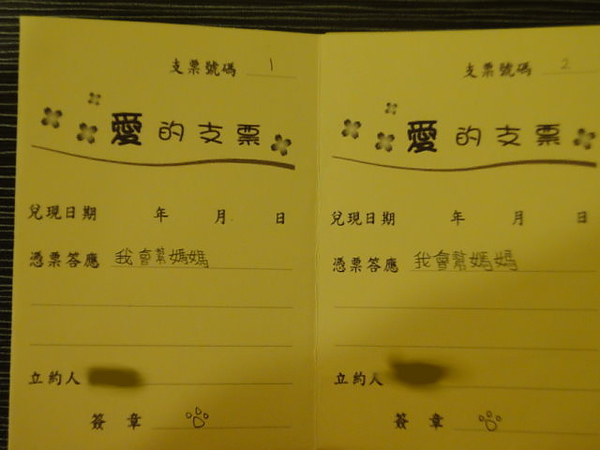 支票號碼 1
愛的支票
兌現日期 年 月 日
憑票答應 我會幫媽媽
立約人
簽章
支票號碼 2
愛的支票
兌現日期 年 月 日
憑票答應 我會幫媽媽
立約人
簽章